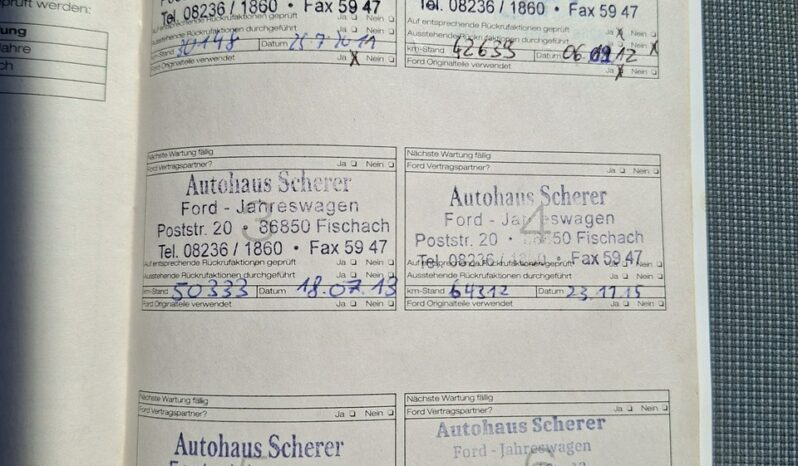 prüft werden:
ung
Jahre
ch
Tel. 08236 / 1860 • Fax 59 47
Auf entsprechende Rückrufaktionen geprüft Ja ❑ Nein ❑
Ausstehende Rückrufaktionen durchgeführt Ja ❑ Nein ❑
km-Stand 30148 Datum 25.7.2011
Ford Originalteile verwendet Ja X Nein ❑
Tel. 08236 / 1860 • Fax 59 47
Auf entsprechende Rückrufaktionen geprüft Ja X Nein ❑
Ausstehende Rückrufaktionen durchgeführt Ja ❑ Nein X
km-Stand 42633 Datum 06 09 12
Ford Originalteile verwendet Ja X Nein ❑
Nächste Wartung fällig
Ford Vertragspartner? Ja ❑ Nein ❑
3
Autohaus Scherer
Ford - Jahreswagen
Poststr. 20 • 86850 Fischach
Tel. 08236 / 1860 • Fax 59 47
Auf entsprechende Rückrufaktionen geprüft Ja ❑ Nein ❑
Ausstehende Rückrufaktionen durchgeführt Ja ❑ Nein ❑
km-Stand 50333 Datum 18.07.13
Ford Originalteile verwendet Ja ❑ Nein ❑
Nächste Wartung fällig
Ford Vertragspartner? Ja ❑ Nein ❑
4
Autohaus Scherer
Ford - Jahreswagen
Poststr. 20 • 86850 Fischach
Tel. 08236 / 1860 • Fax 59 47
Auf entsprechende Rückrufaktionen geprüft Ja ❑ Nein ❑
Ausstehende Rückrufaktionen durchgeführt Ja ❑ Nein ❑
km-Stand 64312 Datum 23.11.15
Ford Originalteile verwendet Ja ❑ Nein ❑
Nächste Wartung fällig
Ford Vertragspartner? Ja ❑ Nein ❑
Autohaus Scherer
Nächste Wartung fällig
Ford Vertragspartner? Ja ❑ Nein ❑
Autohaus Scherer
Ford - Jahreswagen